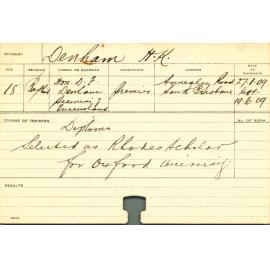 STUDENT Denham H.K.
AGE RELIGION PARENT OR GUARDIAN OCCUPATION ADDRESS DATE OF ENTRANCE
18 Baptist Hon. D. F. Annerley Road 27.1.09
Denham Premier South Brisbane
Premier of 19.6.09
Queensland
COURSE OF TRAINING No. OF ROOM
Diploma
Selected as Rhodes Scholar
for Oxford University
RESULTS